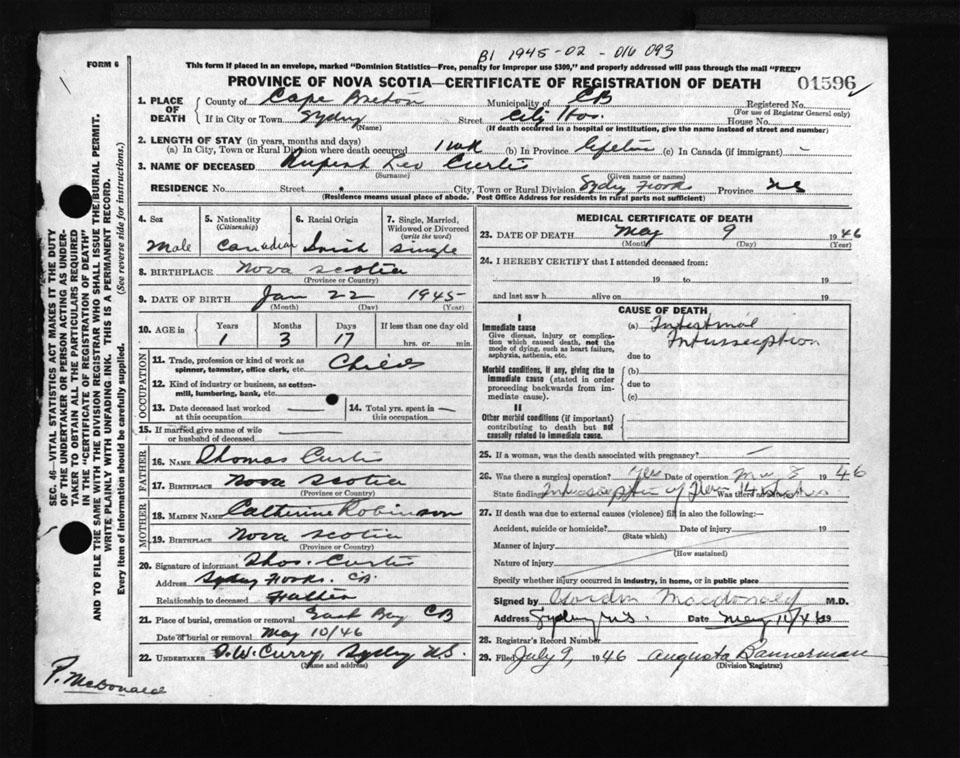 B1 1945-02-016093
FORM 6
This form if placed in an envelope, marked "Dominion Statistics—Free, penalty for improper use $300," and properly addressed will pass through the mail "FREE"
PROVINCE OF NOVA SCOTIA—CERTIFICATE OF REGISTRATION OF DEATH
01596
1. PLACE OF DEATH
County of Cape Breton Municipality of CB Registered No.
(For use of Registrar General only)
If in City or Town Sydney Street City Hos. House No.
(Name) (If death occurred in a hospital or institution, give the name instead of street and number)
2. LENGTH OF STAY (in years, months and days)
(a) In City, Town or Rural Division where death occurred 1 wk (b) In Province Lifetime (c) In Canada (if immigrant) -
3. NAME OF DECEASED Leo Curtis
(Surname) (Given name or names)
RESIDENCE No. Street City, Town or Rural Division Sydney Forks Province NS
(Residence means usual place of abode. Post Office Address for residents in rural parts not sufficient)
4. Sex
Male
5. Nationality
(Citizenship)
Canadian
6. Racial Origin
Irish
7. Single, Married, Widowed or Divorced
(write the word)
Single
8. BIRTHPLACE Nova Scotia
(Province or Country)
9. DATE OF BIRTH Jan 22 1945
(Month) (Day) (Year)
10. AGE in
Years Months Days If less than one day old
1 3 17 hrs. or min.
OCCUPATION
11. Trade, profession or kind of work as
spinner, teamster, office clerk, etc. Child
12. Kind of industry or business, as cotton-
mill, lumbering, bank, etc.
13. Date deceased last worked
at this occupation
14. Total yrs. spent in
this occupation
15. If married give name of wife
or husband of deceased
FATHER
16. NAME Thomas Curtis
17. BIRTHPLACE Nova Scotia
(Province or Country)
MOTHER
18. MAIDEN NAME Catherine Robinson
19. BIRTHPLACE Nova Scotia
(Province or Country)
20. Signature of informant Thos. Curtis
Address Sydney Forks. CB.
Relationship to deceased Father
21. Place of burial, cremation or removal East Bay CB
Date of burial or removal May 10/46
22. UNDERTAKER W. Curry, Sydney N.S.
(Name and address)
P. McDonald
MEDICAL CERTIFICATE OF DEATH
23. DATE OF DEATH May 9 1946
(Month) (Day) (Year)
24. I HEREBY CERTIFY that I attended deceased from:
19 to 19
and last saw h alive on 19
CAUSE OF DEATH
I
Immediate cause
Give disease, injury or complica-
tion which caused death, not the
mode of dying, such as heart failure,
asphyxia, asthenia, etc.
(a) Intestinal
Intussusception
due to
Morbid conditions, if any, giving rise to
immediate cause (stated in order
proceeding backwards from im-
mediate cause).
(b)
due to
(c)
II
Other morbid conditions (if important)
contributing to death but not
causally related to immediate cause.
25. If a woman, was the death associated with pregnancy?
26. Was there a surgical operation? Yes Date of operation May 8 1946
State findings Was there
27. If death was due to external causes (violence) fill in also the following:—
Accident, suicide or homicide? Date of injury 19
(State which)
Manner of injury
(How sustained)
Nature of injury
Specify whether injury occurred in industry, in home, or in public place
Signed by Gordon Macdonald M.D.
Address Sydney N.S. Date May 19
28. Registrar's Record Number
29. Filed July 9, 1946 Augusta Bannerman
(Division Registrar)
SEC. 46—VITAL STATISTICS ACT MAKES IT THE DUTY
OF THE UNDERTAKER OR PERSON ACTING AS UNDER-
TAKER TO OBTAIN ALL THE PARTICULARS REQUIRED
IN THE "CERTIFICATE OF REGISTRATION OF DEATH"
AND TO FILE THE SAME WITH THE DIVISION REGISTRAR WHO SHALL ISSUE THE BURIAL PERMIT.
WRITE PLAINLY WITH UNFADING INK. THIS IS A PERMANENT RECORD.
Every item of information should be carefully supplied. (See reverse side for instructions.)